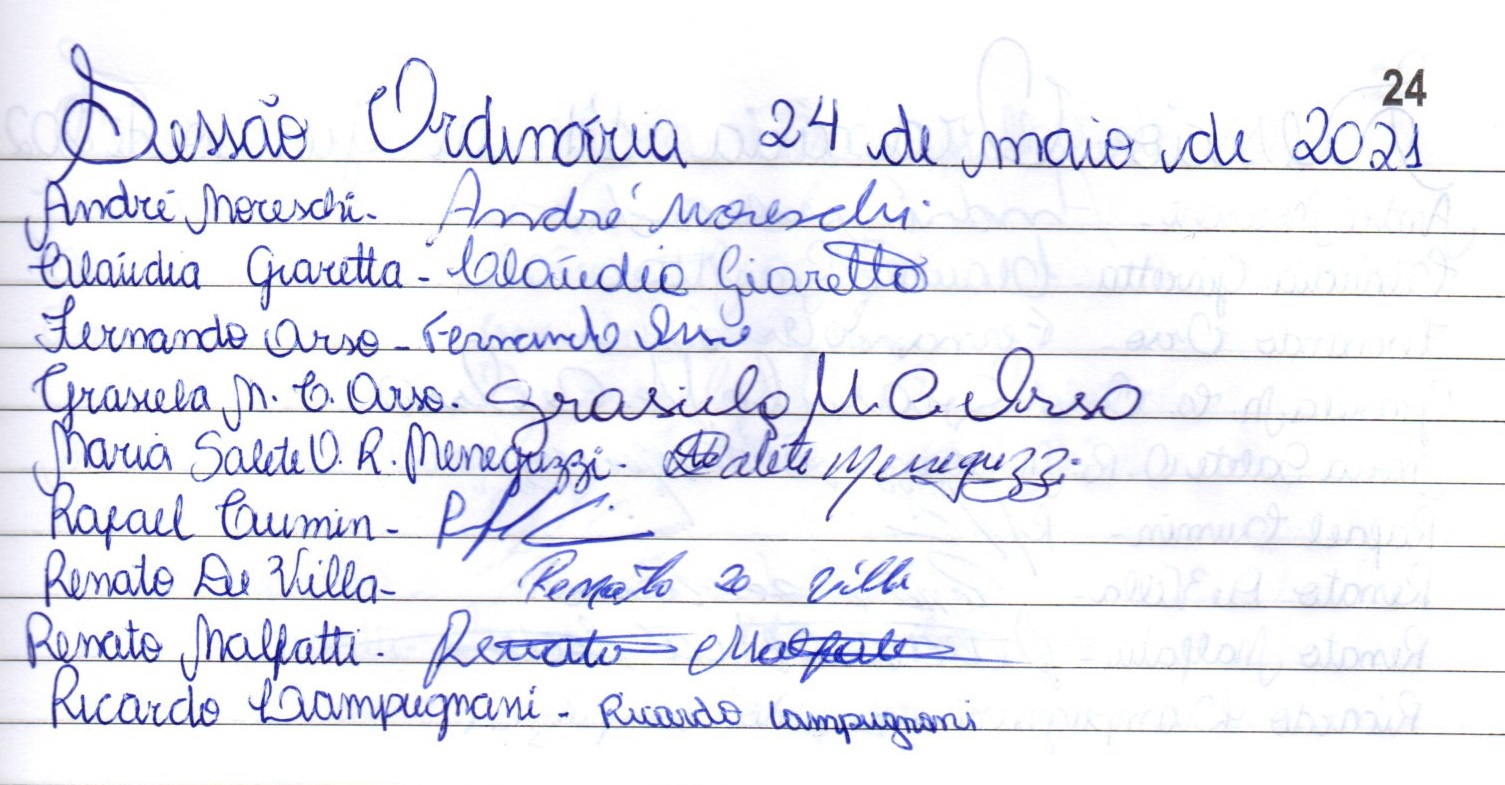 24
Sessão Ordinária 24 de maio de 2021
André Moreschi - André Moreschi
Claúdia Giaretta - Claúdia Giaretta
Fernando Orso - Fernando Orso
Grasiela M. C. Orso. Grasiela M. C. Orso
Maria Salete O. R. Meneguzzi - Salete Meneguzzi
Rafael Cumin -
Renato De Villa - Renato De Villa
Renato Malfatti - Renato Malfatti
Ricardo Lampugnani - Ricardo Lampugnani